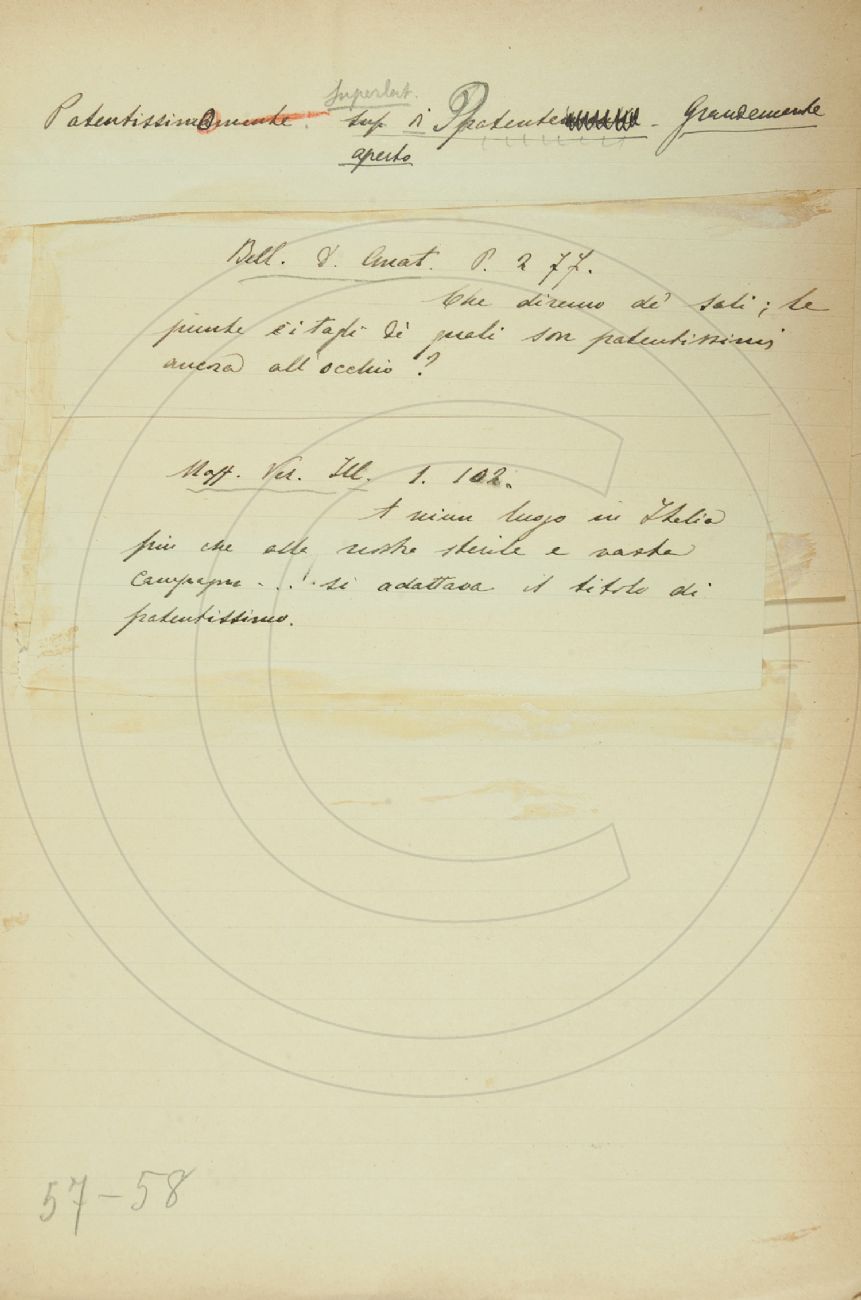 Superlat.
Patentissimo. Sup. di Patente - Grandemente
aperto
Bell. D. Anat. P. 277.
Che diremo de' sali; le
punte e i tagli di quali son patentissimi
ancora all'occhio?
Maff. Ver. Ill. 1. 102.
A niun luogo in Italia
più che alle nostre sterile e vaste
campagne ... si adattava il titolo di
patentissimo.
57-58